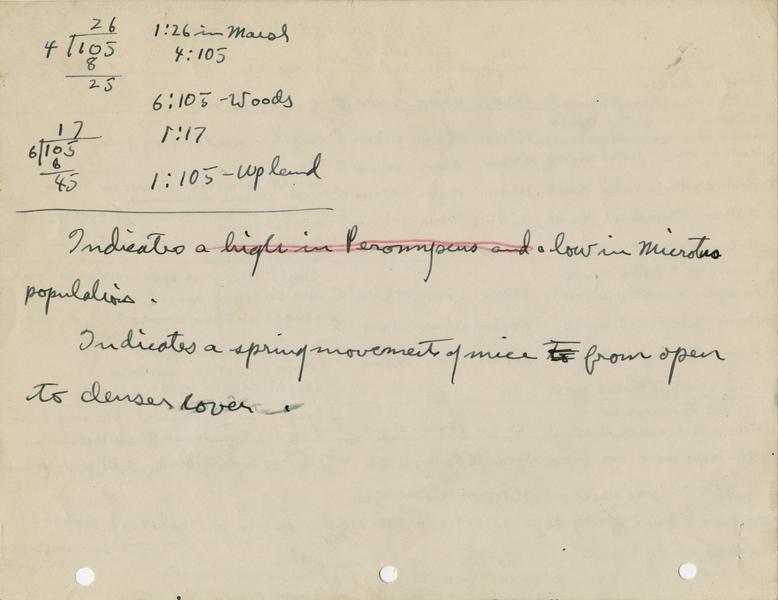 26
4 105
8
25
1:26 in Marsh
4:105
6:105 - Woods
17
6 105
6
45
1:17
1:105 - Upland
Indicates a high in Peromyscus and a low in Microtus
populations.
Indicates a spring movement of mice to from open
to denser cover.